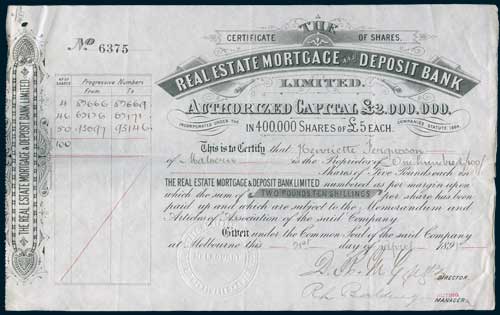 No 6375
CERTIFICATE OF SHARES.
THE
REAL ESTATE MORTGAGE AND DEPOSIT BANK
LIMITED.
AUTHORIZED CAPITAL £2.000.000.
INCORPORATED UNDER THE COMPANIES STATUTE 1864
IN 400.000 SHARES OF £5 EACH.
THE REAL ESTATE MORTGAGE & DEPOSIT BANK LIMITED
No OF SHARES
Progressive Numbers
From To
4 69666 69669
46
50 95146
100
This is to Certify that Henriette Ferguson
of Malvern is the Proprietor of One hundred /100/
Shares of Five Pounds each in
THE REAL ESTATE MORTGAGE & DEPOSIT BANK LIMITED numbered as per margin upon
which the sum of TWO POUNDS TEN SHILLINGS per share has been
paid up and which are subject to the Memorandum and
Articles of Association of the said Company.
Given under the Common Seal of the said Company
at Melbourne this day of 189
DIRECTOR.
ACTING
MANAGER.